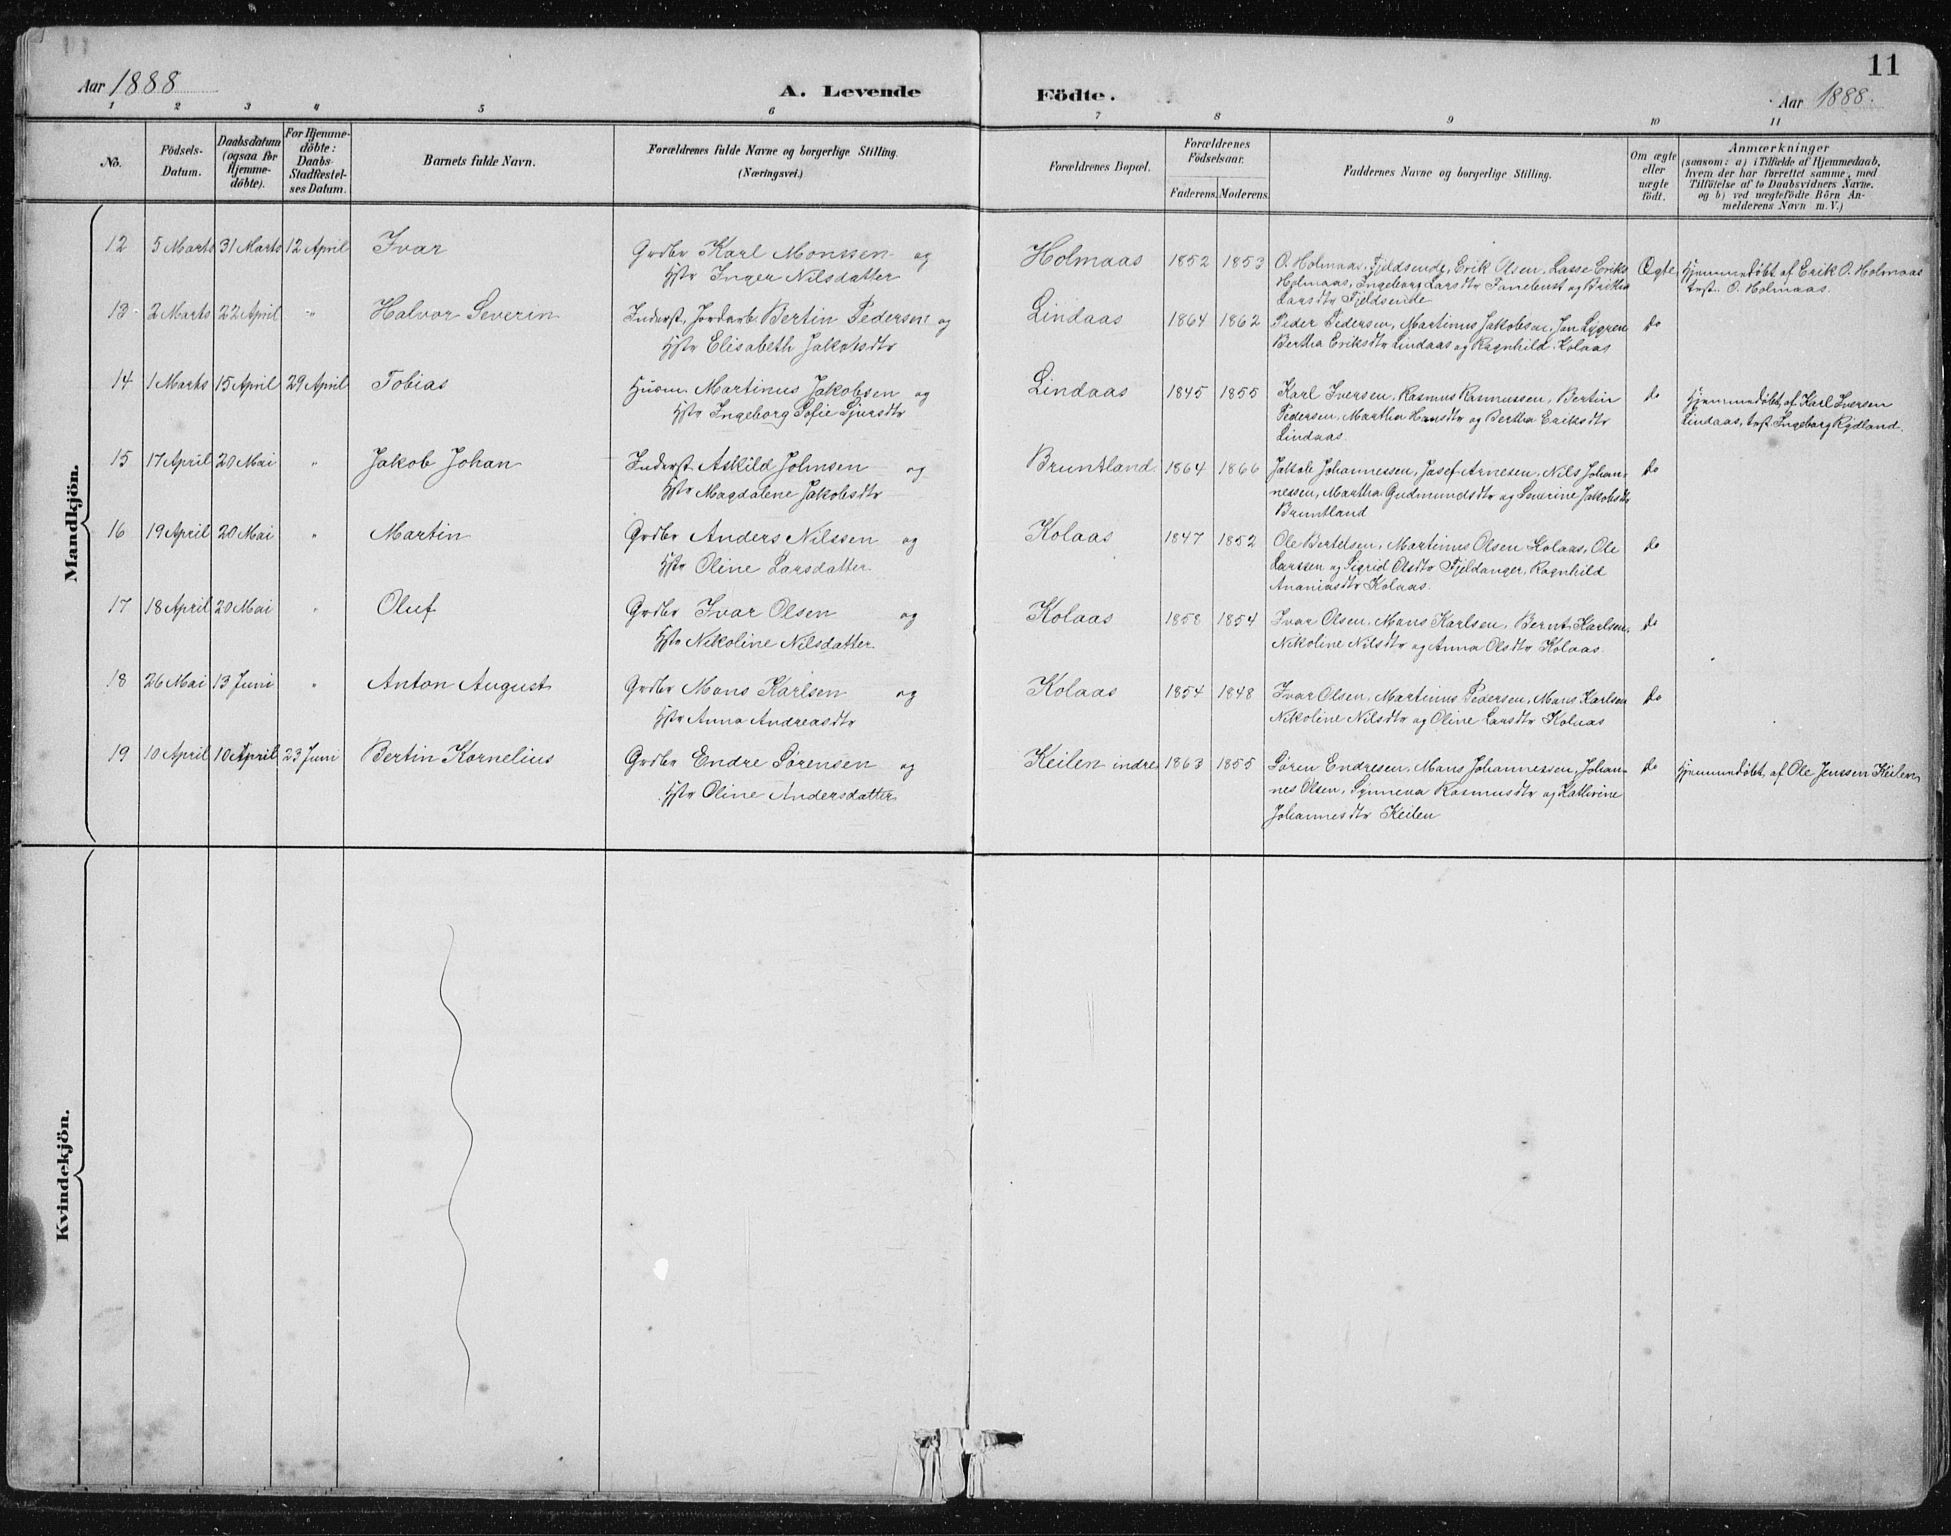 11
Aar 1888
A. Levende Födte.
Aar 1888.
1 2 3 4 5 6 7 8 9 10 11
No.
Födsels-
Datum.
Daabsdatum
(ogsaa for
Hjemme-
döbte).
For Hjemme-
döbte:
Daabs-
Stadfæstel-
ses Datum.
Barnets fulde Navn.
Forældrenes fulde Navne og borgerlige Stilling.
(Næringsvei.)
Forældrenes Bopæl.
Forældrenes
Födselsaar.
Faderens. Moderens.
Faddernes Navne og borgerlige Stilling.
Om ægte
eller
uægte
födt.
Anmærkninger
(saasom: a) i Tilfælde af Hjemmedaab,
hvem der har forrettet samme, med
Tilföielse af to Daabsvidners Navne.
og b) ved uægtefödte Börn An-
melderens Navn m. V.)
Mandkjön.
12 5 Marts 31 Marts 12 April Ivar Grdbr Karl Monssen og Holmaas 1852 1853 O. Holmaas, Fjeldsende, Erik Olsen, Lasse Eriks Ægte Hjemmedöbt af Erik O. Holmaas
Hstr Inger Nilsdatter Holmaas, Ingeborg Larsdtr Tanebust og Brithe test. O. Holmaas.
Larsdtr Fjeldsende
13 2 Marts 22 April " Halvor Severin Inderst, Jordarb. Bertin Pedersen og Lindaas 1864 1862 Peder Pedersen, Martinus Jakobsen, Jan Lygren do
Hstr Elisabeth Jakobsdtr Bertha Eriksdtr Lindaas og Ragnhild Kolaas
14 1 Marts 15 April 29 April Tobias Husm. Martinus Jakobsen og Lindaas 1845 1855 Karl Iversen, Rasmus Rasmussen, Bertin do Hjemmedöbt af Karl Iversen
Hstr Ingeborg Sofie Sjursdtr Pedersen, Martha Hansdtr og Bertha Eriksdtr Lindaas, test. Ingeborg Rydland.
Lindaas.
15 17 April 20 Mai " Jakob Johan Inderst Askild Johnsen og Bruntland 1864 1866 Jakob Johannessen, Josef Arnesen, Nils Johan- do
Hstr Magdalene Jakobsdtr nessen, Martha Gudmundsdtr og Severine Jakobsdtr
Bruntland
16 19 April 20 Mai " Martin Grdbr Anders Nilssen og Kolaas 1847 1852 Ole Bertelsen, Martinus Olsen Kolaas, Ole do
Hstr Oline Larsdatter. Larssen og Sigrid Olsdtr Fjeldanger, Ragnhild
Ananiasdtr Kolaas.
17 18 April 20 Mai " Oluf Grdbr Ivar Olsen og Kolaas 1858 1854 Ivar Olsen, Mons Karlsen, Bernt Karlsen, do
Hstr Nikoline Nilsdatter. Nikoline Nilsdtr og Anna Olsdtr Kolaas.
18 26 Mai 13 Juni " Anton August Grdbr Mons Karlsen og Kolaas 1854 1848 Ivar Olsen, Martinus Pedersen, Mons Karlsen do
Hstr Anna Andreasdtr Nikoline Nilsdtr og Oline Larsdtr Kolaas
19 10 April 10 April 23 Juni Bertin Kornelius Grdbr Endre Sørensen og Keilen indre 1863 1855 Søren Endresen, Mons Johannessen, Johan- do Hjemmedöbt, af Ole Jenssen Keilen,
Hstr Oline Andersdatter nes Olsen, Synneva Rasmusdtr og Kathrine
Johannesdtr Keilen
Kvindekjön.